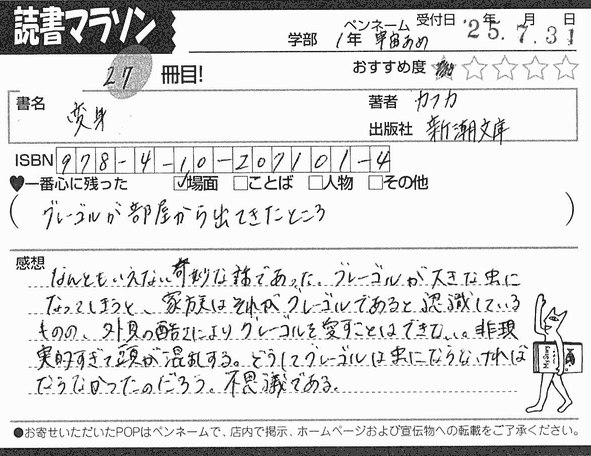 読書マラソン
学部 1年 ペンネーム 宇宙あめ 受付日 '25年7月31日
27冊目!
おすすめ度 ★☆☆☆☆
書名 変身
著者 カフカ
出版社 新潮文庫
ISBN 978-4-10-207101-4
♥一番心に残った ☑場面 □ことば □人物 □その他
(グレーゴルが部屋から出てきたところ)
感想
なんともいえない奇妙な話であった。グレーゴルが大きな虫に
なってしまうと、家族はそれがグレーゴルであると認識している
ものの、外見の酷さによりグレーゴルを愛すことはできない。非現
実的すぎて頭が混乱する。どうしてグレーゴルは虫にならなければ
ならなかったのだろう。不思議である。
●お寄せいただいたPOPはペンネームで、店内で掲示、ホームページおよび宣伝物への転載をご了承ください。